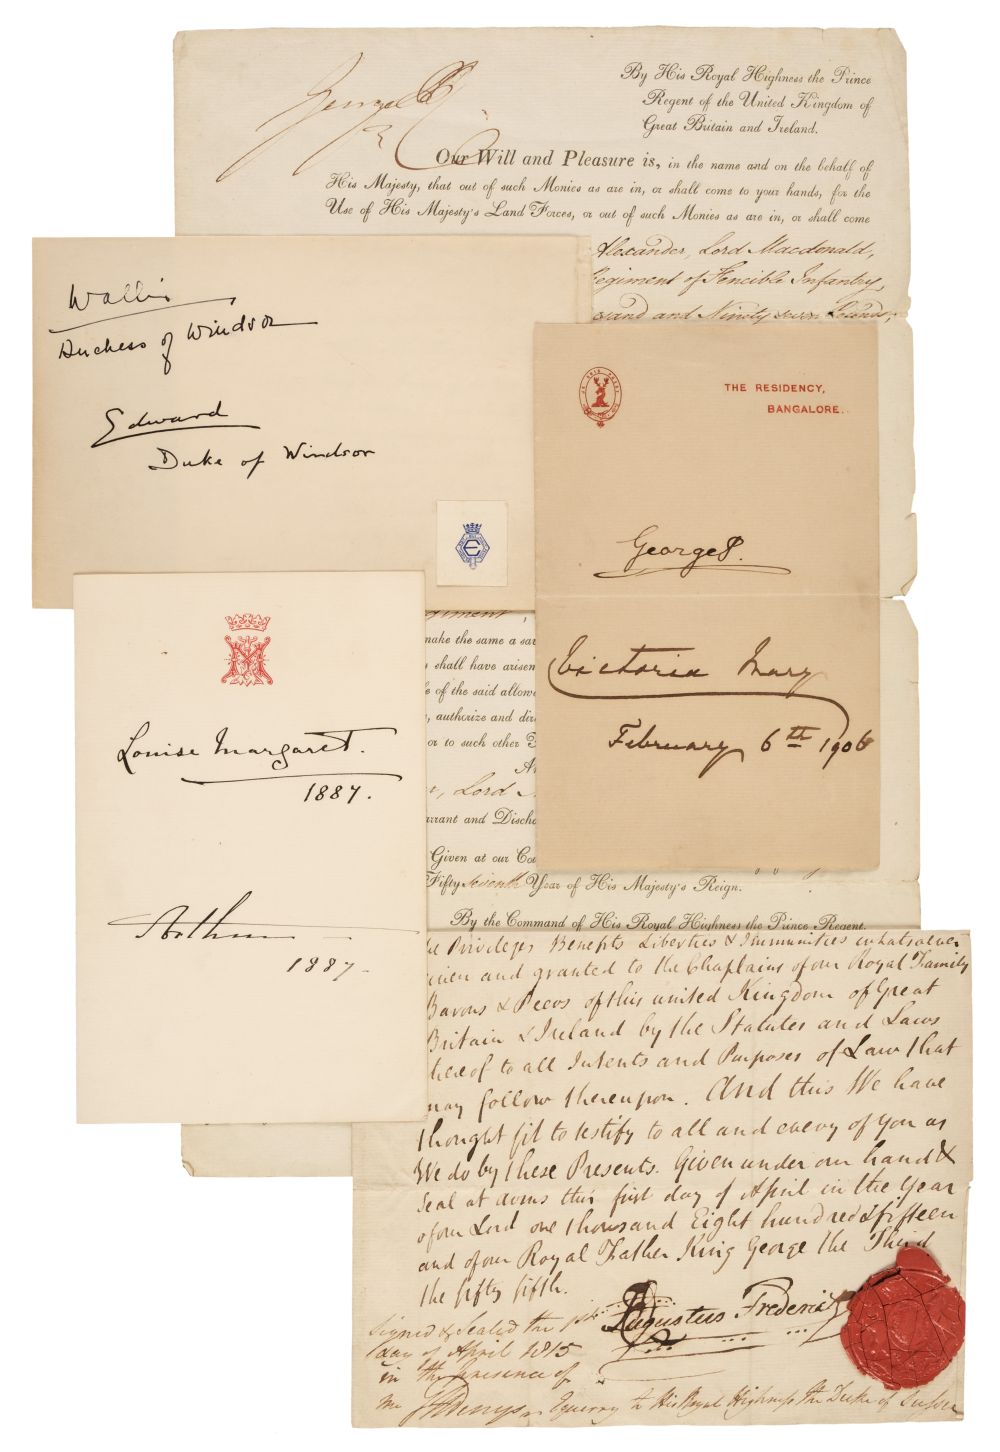 By His Royal Highness the Prince
Regent of the United Kingdom of
Great Britain and Ireland.
George P R
Our Will and Pleasure is, in the name and on the behalf of
His Majesty, that out of such Monies as are in, or shall come to your hands, for the
Use of His Majesty's Land Forces, or out of such Monies as are in, or shall come
Alexander, Lord Macdonald,
Regiment of Fencible Infantry,
and Ninety seven Pounds;
Wallis
Duchess of Windsor
Edward
Duke of Windsor
E
THE RESIDENCY,
BANGALORE.
George P.
Victoria Mary
February 6th 1906
make the same a
shall have arisen
of the said
, authorize and
or to such other
, Lord
and
Given at our
Fifty seventh Year of His Majesty's Reign.
By the Command of His Royal Highness the Prince Regent.
M
Louise Margaret.
1887.
Arthur
1887.
Privileges Benefits Liberties & Immunities whatsoever
given and granted to the Chaplains of our Royal Family
Barons & Peers of this united Kingdom of Great
Britain & Ireland by the Statutes and Laws
thereof to all Intents and Purposes of Law that
may follow thereupon. And this We have
thought fit to testify to all and every of you as
We do by these Presents. Given under our hand &
Seal at arms this first day of April in the Year
of our Lord one thousand Eight hundred & fifteen
and of our Royal Father King George the Third
the fifty fifth.
Augustus Frederick
Signed & Sealed the 1st
day of April 1815
in the presence of
me Equerry to His Royal Highness the Duke of Sussex